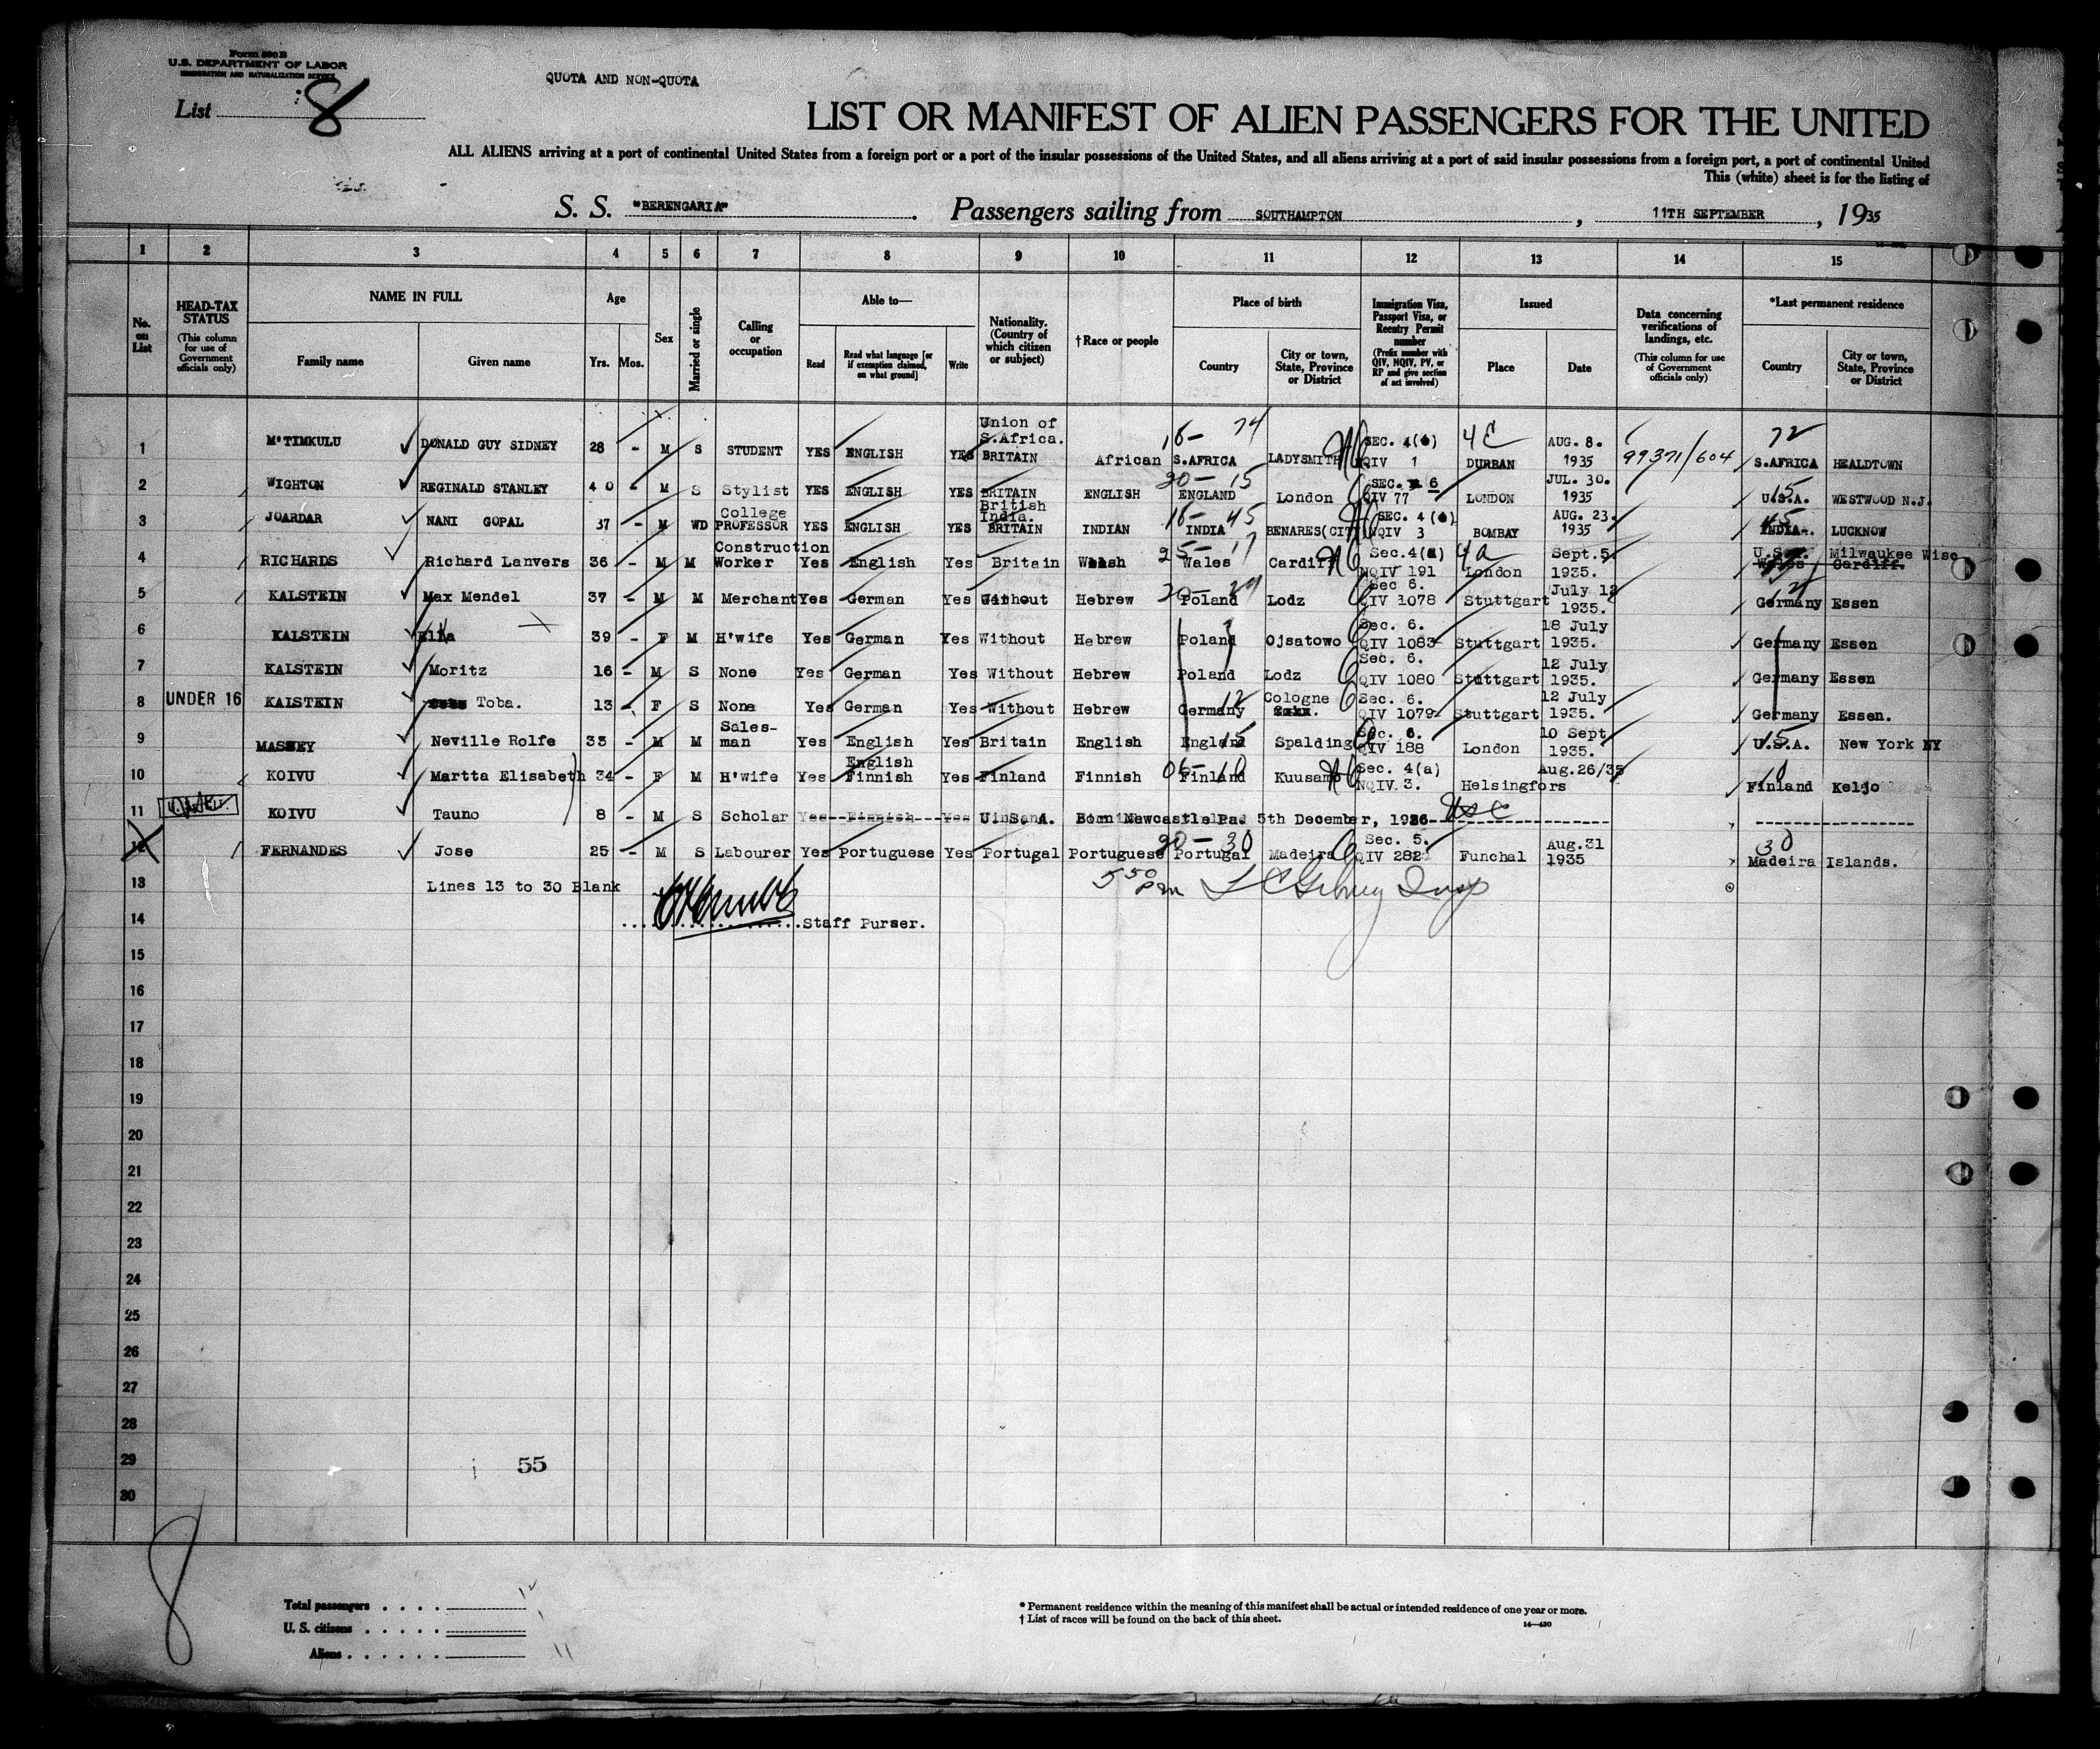 Form 500 B
U.S. DEPARTMENT OF LABOR
IMMIGRATION AND NATURALIZATION SERVICE
List 8
QUOTA AND NON-QUOTA
LIST OR MANIFEST OF ALIEN PASSENGERS FOR THE UNITED
ALL ALIENS arriving at a port of continental United States from a foreign port or a port of the insular possessions of the United States, and all aliens arriving at a port of said insular possessions from a foreign port, a port of continental United
This (white) sheet is for the listing of
S. S. "BERENGARIA". Passengers sailing from SOUTHAMPTON, 11TH SEPTEMBER, 1935
1 2 3 4 5 6 7 8 9 10 11 12 13 14 15
No. on List
HEAD-TAX STATUS (This column for use of Government officials only)
NAME IN FULL
Family name
Given name
Age
Yrs. Mos.
Sex
Married or single
Calling or occupation
Able to—
Read
Read what language [or if exemption claimed, on what ground]
Write
Nationality. (Country of which citizen or subject)
†Race or people
Place of birth
Country
City or town, State, Province or District
Immigration Visa, Passport Visa, or Reentry Permit number (Prefix number with QIV, NQIV, PV, or RP and give section of act involved)
Issued
Place
Date
Data concerning verifications of landings, etc. (This column for use of Government officials only)
*Last permanent residence
Country
City or town, State, Province or District
1 McTIMKULU DONALD GUY SIDNEY 28 - M S STUDENT YES ENGLISH YES Union of S.Africa. BRITAIN African 16- 74 S.AFRICA LADYSMITH SEC. 4(e) NQIV 1 4E DURBAN AUG. 8. 1935 99371/604 72 S.AFRICA HEALDTOWN
2 WIGHTON REGINALD STANLEY 40 - M S Stylist YES ENGLISH YES BRITAIN ENGLISH 20-15 ENGLAND London SEC. 6 QIV 77 LONDON JUL. 30. 1935 15 U.S.A. WESTWOOD N.J.
3 JOARDAR NANI GOPAL 37 - M WD College PROFESSOR YES ENGLISH YES British India. BRITAIN INDIAN 16-45 INDIA BENARES(CITY) SEC. 4(e) NQIV 3 BOMBAY AUG. 23. 1935 45 INDIA. LUCKNOW
4 RICHARDS Richard Lanvers 36 - M M Construction Worker Yes English Yes Britain Welsh 25-17 Wales Cardiff Sec.4(a) NQIV 191 4a London Sept.5. 1935. U.S.A. Milwaukee Wisc Wales Cardiff.
5 KALSTEIN Max Mendel 37 - M M Merchant Yes German Yes Without Hebrew Poland Lodz Sec 6. QIV 1078 Stuttgart July 12 1935. Germany Essen
6 KALSTEIN Ella 39 - F M H'wife Yes German Yes Without Hebrew Poland Ojsatowo Sec. 6. QIV 1083 Stuttgart 18 July 1935. Germany Essen
7 KALSTEIN Moritz 16 - M S None Yes German Yes Without Hebrew Poland Lodz Sec. 6. QIV 1080 Stuttgart 12 July 1935. Germany Essen
8 UNDER 16 KALSTEIN Toba. 13 - F S None Yes German Yes Without Hebrew 12 Germany Cologne Sec. 6. QIV 1079 Stuttgart 12 July 1935. Germany Essen.
9 MASSEY Neville Rolfe 33 - M M Salesman Yes English Yes Britain English 15 England Spalding Sec. 6. QIV 188 London 10 Sept 1935. 15 U.S.A. New York NY
10 KOIVU Martta Elisabeth 34 - F M H'wife Yes English Finnish Yes Finland Finnish 06-10 Finland Kuusamo Sec. 4(a) NQIV 3. Helsingfors Aug.26/35 10 Finland Keljo
11 KOIVU Tauno 8 - M S Scholar Yes--Finnish---Yes U.S.A. Born Newcastle Pa. 5th December, 1926 USC
12 FERNANDES Jose 25 - M S Labourer Yes Portuguese Yes Portugal Portuguese 20-30 Portugal Madeira Sec. 5. QIV 282 Funchal Aug.31 1935 30 Madeira Islands.
13 Lines 13 to 30 Blank 5 50 Pm
14 Staff Purser.
15
16
17
18
19
20
21
22
23
24
25
26
27
28
29 55
30
8
Total passengers . . . . 12
U. S. citizens . . . . . 1
Aliens . . . . . . 11
* Permanent residence within the meaning of this manifest shall be actual or intended residence of one year or more.
† List of races will be found on the back of this sheet.
14—430